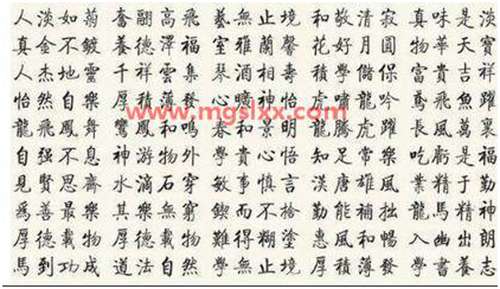 人淡如菊 奮翮高飛 藝無止境 和敬清寂 真味是淡
真金不鍍 養德澤福 室雅蘭馨 花好月圓 物華天寶
人杰地靈 千祥雲集 琴酒相壽 積學儲保 富貴吉祥
怡然自樂 厚積薄發 心曠神怡 虎嘯龍吟 鳶飛魚躍
www.mgslxx.com
龍飛鳳舞 鸞鳳和鳴 春和景明 龍騰虎躍 長風萬裏
自强不息 神游物外 學貴心悟 知足常樂 吃虧是福
見賢思齋 水滴石穿 敏事慎言 漢唐雄風 業精于勤
爲善最樂 其樂無窮 鍥而不捨 勤能補拙 龍馬精神
厚德載物 厚德載物 難得糊塗 惠風和暢 入幽出朗
馬到功成 道法自然 學無止境 厚積薄發 學書養志